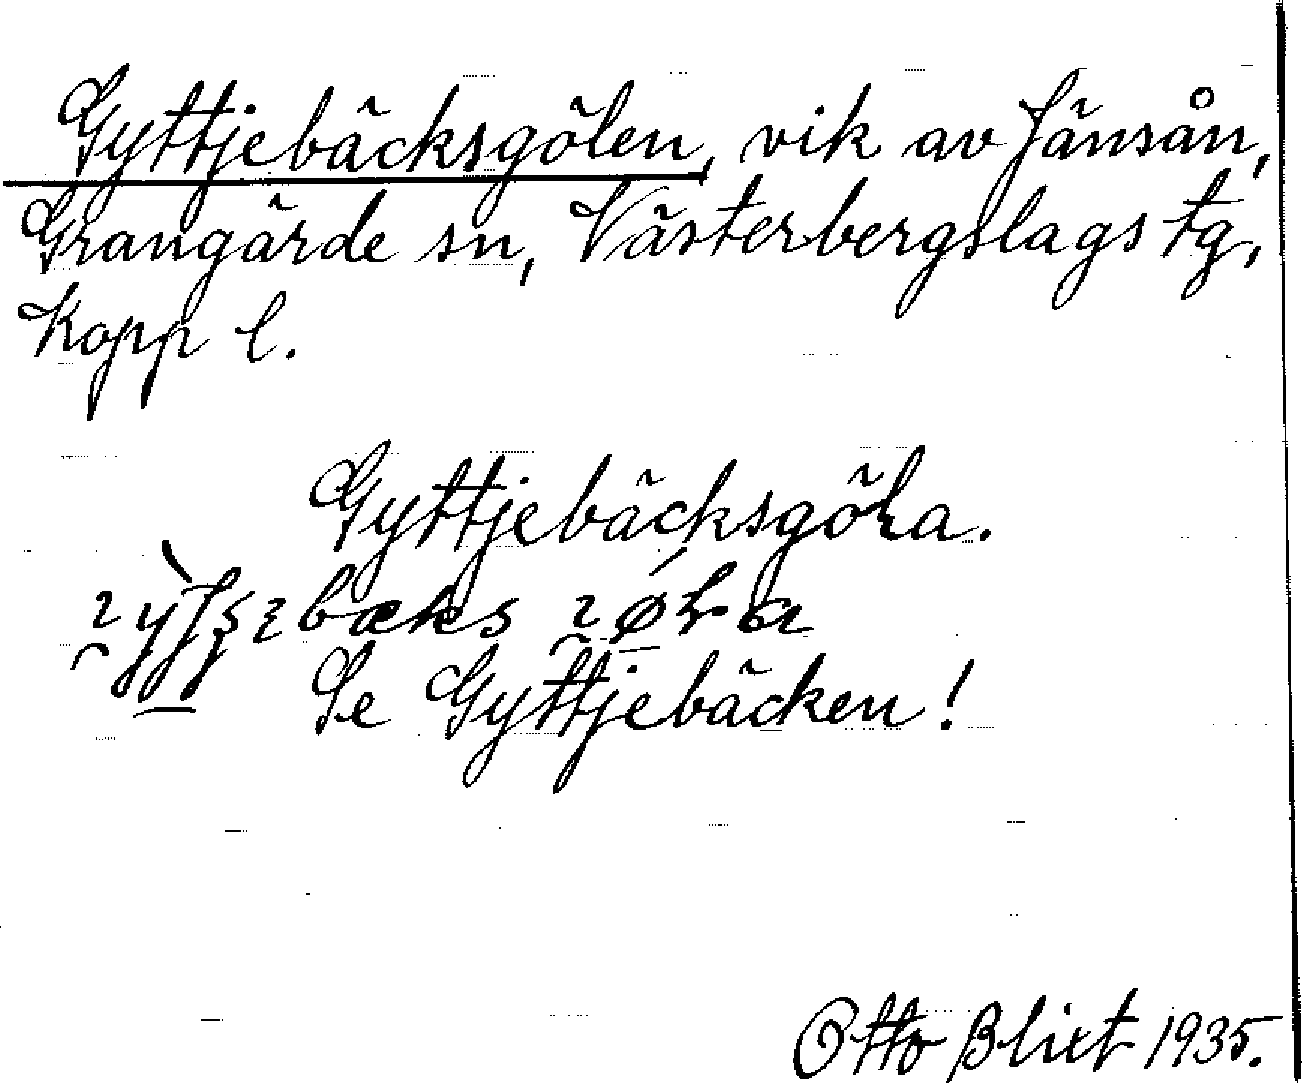 Gyttjebäcksgölen, vik av Jänsån,
Grangärde sn, Västerbergslags tg,
Kopp l.
Gyttjebäcksgöla.
Se Gyttjebäcken!
Otto Blixt 1935.